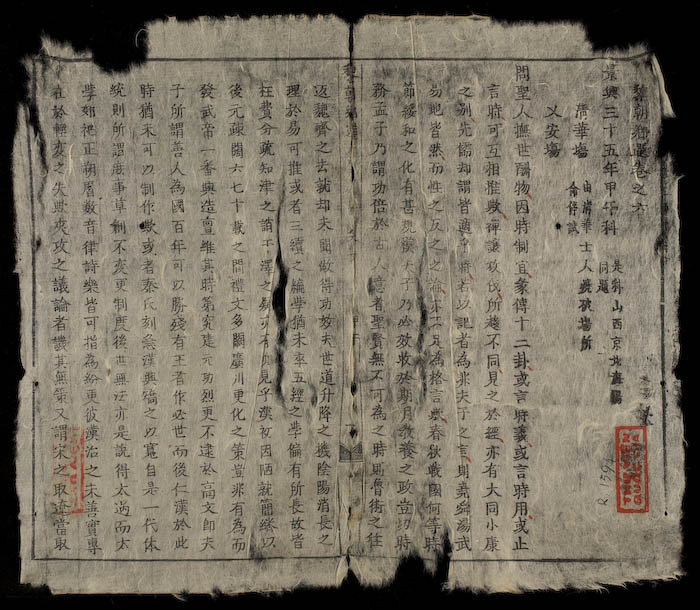 黎朝鄉選卷之六
景興三十五年甲午科
是科山西京北海陽
同題
清華場
由清華士人毀破場所
命停試
乂安場
問聖人撫世酬物因時制宜象傳十二卦或言時義或言時用或止
言時可互相推歟禪讓攻伐所趨不同見之於經亦有大同小康
之別先儒却謂皆適乎時若以記者為非夫子之言則堯舜湯武
易地皆然而性之反之之論亦不足為格言歟春秋戰國何等時
節綏和之化有甚規模夫子乃必效收於期月教養之政豈切時
務孟子乃謂功倍於古人意者聖賢無不可為之時則魯衛之往
返魏齊之去就却未聞做得功效夫世道升降之機陰陽消長之
理於易可推或者三續之編學猶未率五經之學偏有所長故皆
枉費分疏知津之誚不澤之疑亦有由見乎漢初因陋就簡緣以
後元疎闊六七十載之間禮文多闕廣川更化之策豈非有為而
發武帝一番興造豈維其時第究建元功烈更不逮於高文即夫
子所謂善人為國百年可以勝殘有王者作必世而後仁漢於此
時猶未可以制作歟或者秦氏刻矣漢興矯之以寬自是一代体
統則所謂漢事草創不变更制度後世無法亦是說得太過而太
學郊祀正朔曆数音律詩樂皆可指為紛更彼漢治之未善實專
在於輕变之失歟夾攻之議論者譏其無策又謂宋之取遼當取
R.1591